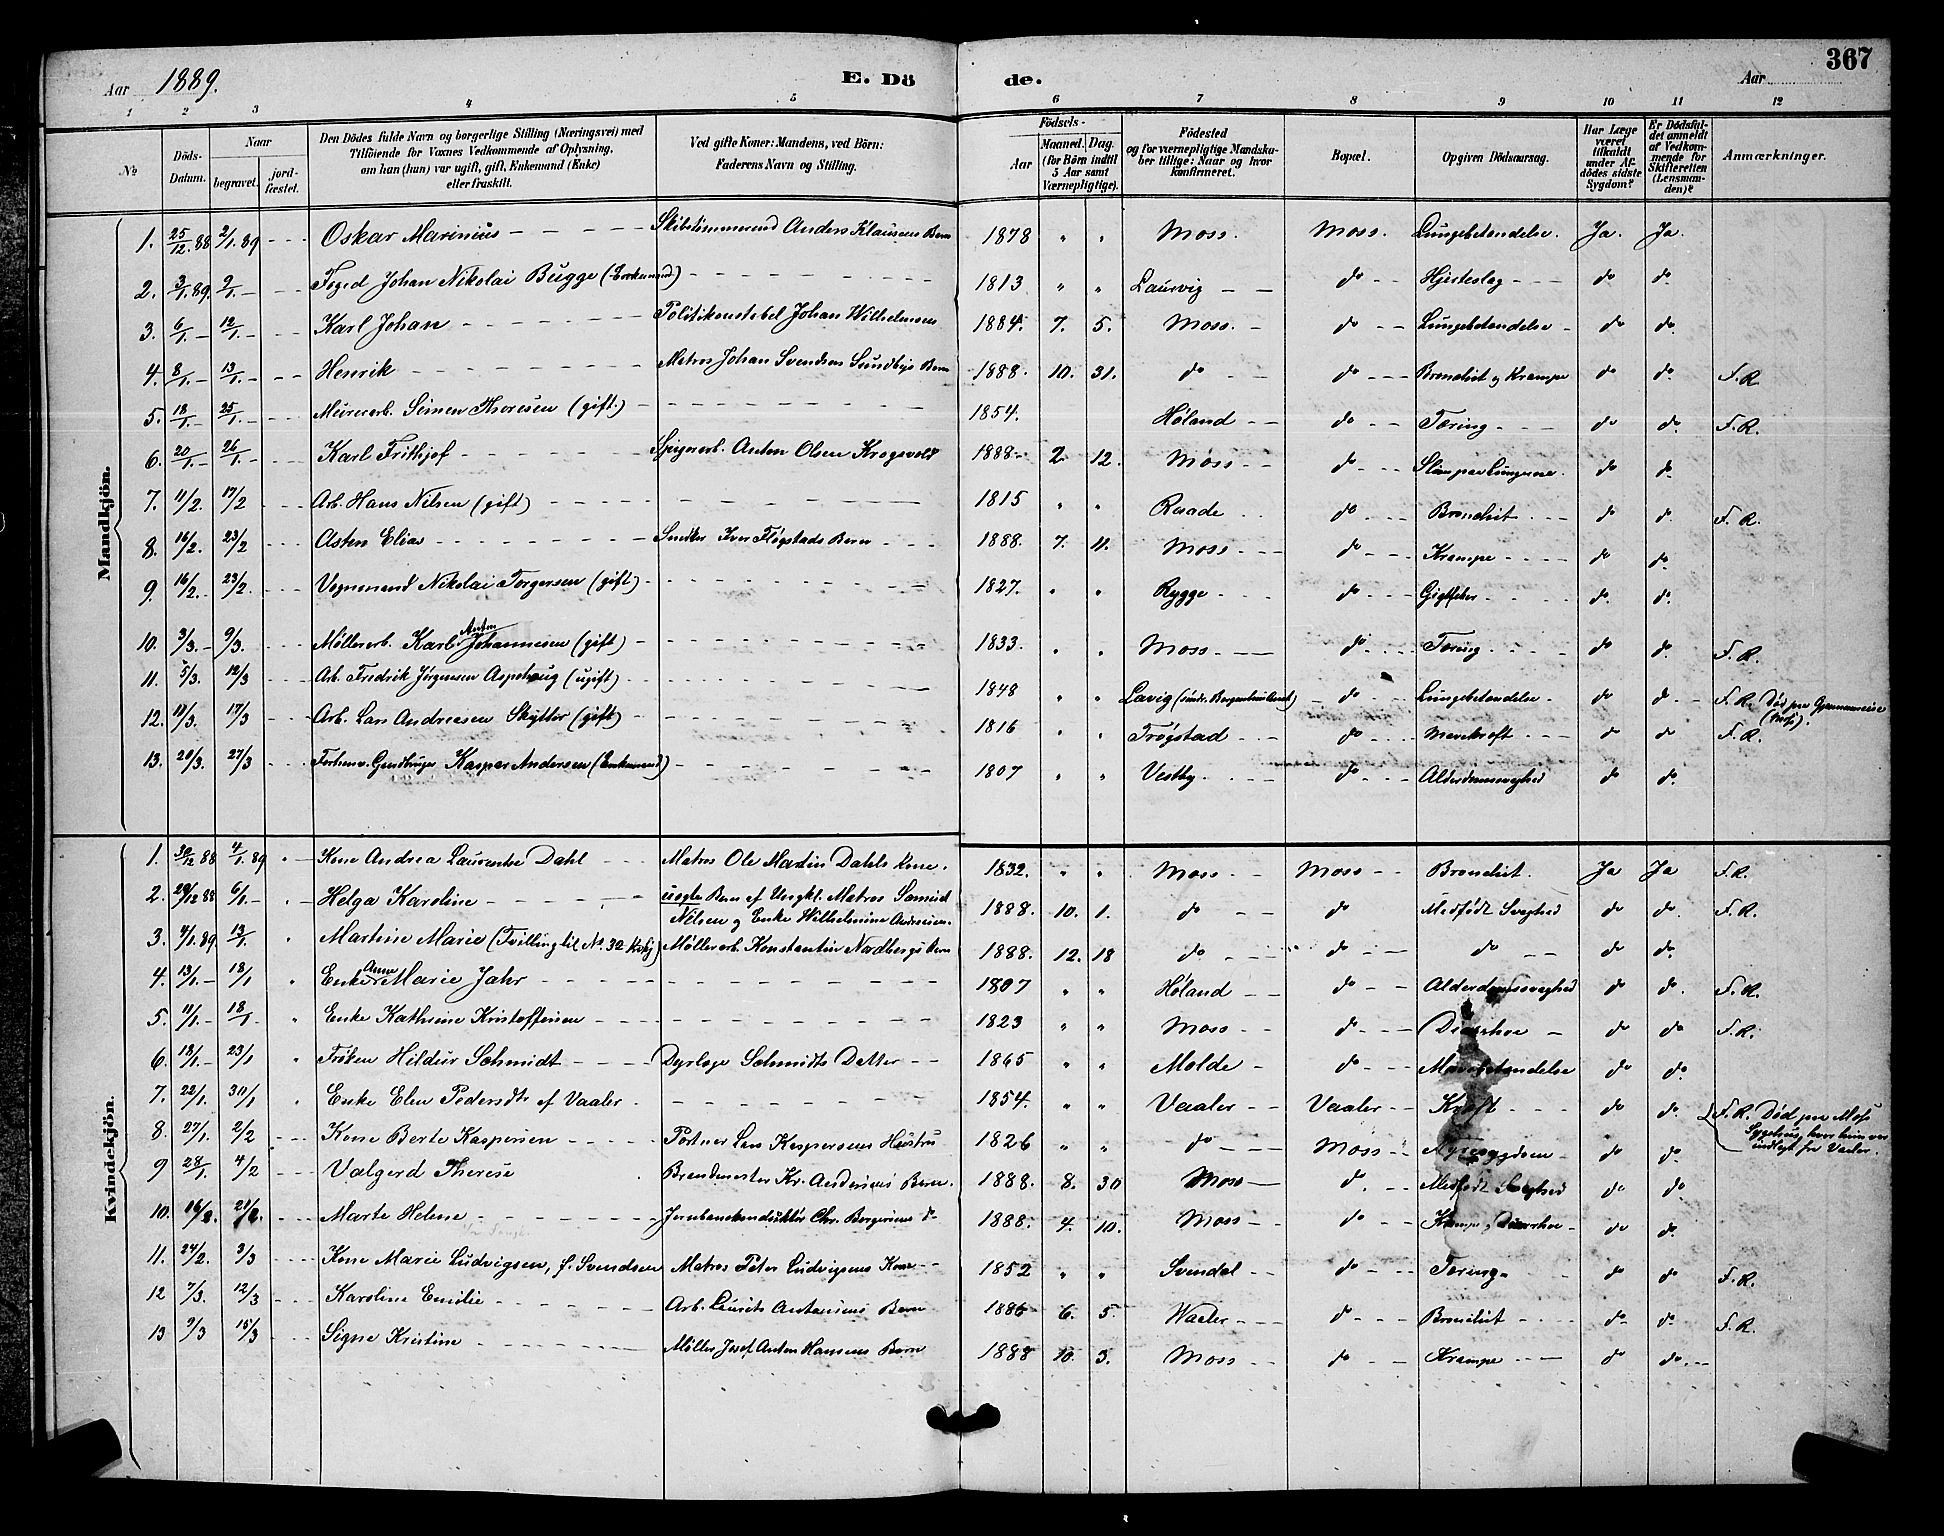 Aar 1889. E. Dö de. Aar 367
1 2 3 4 5 6 7 8 9 10 11 12
№
Döds-Datum.
Naar begravet. jordfæstet.
Den Dödes fulde Navn og borgerlige Stilling (Næringsvei) med Tilföiende for Voxnes Vedkommende af Oplysning, om han (hun) var ugift, gift, Enkemand (Enke) eller fraskilt.
Ved gifte Koner: Mandens, ved Börn: Faderens Navn og Stilling.
Födsels- Aar Maaned. Dag. (for Börn indtil 5 Aar samt Værnepligtige).
Födested og for værnepligtige Mandskaber tillige: Naar og hvor konfirmeret.
Bopæl.
Opgiven Dödsaarsag.
Har Læge været tilkaldt under Afdödes sidste Sygdom?
Er Dödsfaldet anmeldt af Vedkommende for Skifteretten (Lensmanden)?
Anmærkninger.
Mandkjön.
1. 25/12. 88 2/1. 89 - - - Oskar Marinius - - - Skibstimmermand Anders Klausens Barn 1878 " " Moss. Moss. Lungebetændelse. Ja. Ja.
2. 3/1. 89. 9/1. - - - Foged Johan Nikolai Bugge (Enkemand) - - - 1813 " " Laurvig - - do Hjerteslag - - - do do.
3. 6/1. - 12/1. - - - Karl Johan - - - Politikonstabel Johan Wilhelmsens 1884. 7. 5. Moss. - do - - Lungebetændelse - do do.
4. 8/1. - 13/1. - - - Henrik - - - Matros Johan Svendsen Sundbys Barn 1888. 10. 31. do - - do - - - Bronchit og Krampe do do. F. R.
5. 18/1. - 25/1. - - - Murerarb. Simen Thoresen (gift.) - - - 1854. Høland - - do - - Tæring - - - do do. F. R.
6. 20/1. - 26/1. - - - Karl Frithjof - - - Spigerarb. Anton Olsen Krogsvold 1888 - 2. 12. Moss - - do - - - Slim paa Lungerne. do do.
7. 11/2. 17/2 - - - Arb. Hans Nilsen (gift) - - - 1815 " " Raade do - - Bronchit - - - do do. F. R.
8. 16/2. 23/2 - - - Asten Elias - - - Snedker Iver Fløgstads Barn - - - 1888. 7. 11. Moss - - - do - - Krampe - - - do do.
9. 16/2. - 23/2. - - - Vognmand Nikolai Torgersen (gift) - - - 1827. " " Rygge - - do - - Gigtfeber - - - do. do.
10. 3/3. - 9/3. - - - Møllerarb. Karl Anton Johannesen (gift) - - - 1833. " " Moss - - - do - - Tæring - - - do do. F. R.
11. 5/3. 12/3 - - - Arb. Fredrik Jørgensen Aspehaug (ugift) - - - 1848 " " Lavig (søndr. Bergenhus Amt) - do - - Lungebetændelse. - do do - - F. R. Død paa Gjennemreise (Moss).
12. 11/3. 17/3 - - - Arb. Lars Andreasen Skytter (gift) - - - 1816 " " Trøgstad - - - do - - Mavekræft - - - do do F. R.
13. 20/3. 27/3 - - - Forhenv. Gaardbruger Kasper Andersen (Enkemand) - - - 1807 " " Vestby - - - do - - Alderdomssvaghed do do.
Kvindekjön.
1. 30/12 88 4/1. 89 " - Kone Andrea Laurentse Dahl - - - Matros Ole Martin Dahls Kone. 1832. " " Moss - - Moss - - Bronchit. Ja Ja F. R.
2. 29/12 88 6/1. - " - Helga Karoline - - - uægte Barn af Ungkl. Matros Samuel Nilsen og Enke Wilhelmine Andersen. 1888. 10. 1. do - - do Medfødt Svaghed do do. F. R.
3. 4/1. 89. 13/1 " Martine Marie (Tvilling til No. 32 Kirby) Møllerarb. Konstantin Nordbergs Barn 1888. 12. 18 do - - - do - - do - - do do.
4. 13/1. - 18/1 " Enke Anne Marie Jahr - - - 1807 " " Høland - - do - - Alderdomssvaghed do do. F. R.
5. 11/1. - 18/1. - " Enke Kathrine Kristoffersen - - - 1823 " " Moss - - do - - Diarrhoe - do do. F. R.
6. 18/1. - 23/1 " Frøken Hildur Schmidt - - - Dyrlæge Schmidts Datter - - 1865 " " Molde - do - - Mavebetændelse do do.
7. 22/1. 30/1 " Enke Elen Pedersdtr. af Vaaler - - - 1854. " " Vaaler - - Vaaler - - Kræft - - - do do. F. R. Død paa Moss Sygehus, hvor hun var indlagt fra Vaaler.
8. 27/1. 2/2 - - - Kone Berte Kaspersen - - - Portner Lars Kaspersens Hustru 1826 " " do - - - Moss - - Nyresygdom - do do.
9 28/1. 4/2 - - - Valgerd Therese Brandmester Kr. Andersens Barn. 1888. 8. 30 Moss - do. - - Medfødt Svaghed do do
10. 16/2. 21/2. - - - Marte Helene - - - Jernbanekonduktør Chr. Borgersens do 1888. 4. 10. Moss - - do - - Krampe, Diarrhoe - do do.
11. 24/2. 3/3 - - - Kone Marie Ludvigsen, f. Svendsen Matros Peter Ludvigsens Kone - - 1852 " " Svendal - - do - - Tæring - do do F. R.
12 7/3. 12/3 - - - Karoline Emilie - - - Arb. Laurits Antonsens Barn 1886 6. 5. Waaler - - - do - - Bronchit - - - do - do. F. R.
13 9/3 15/3 - - - Signe Kristine - - - Møller Josef Anton Hansens Barn 1888 10. 3. Moss - - do - - Krampe - - - do do. - -